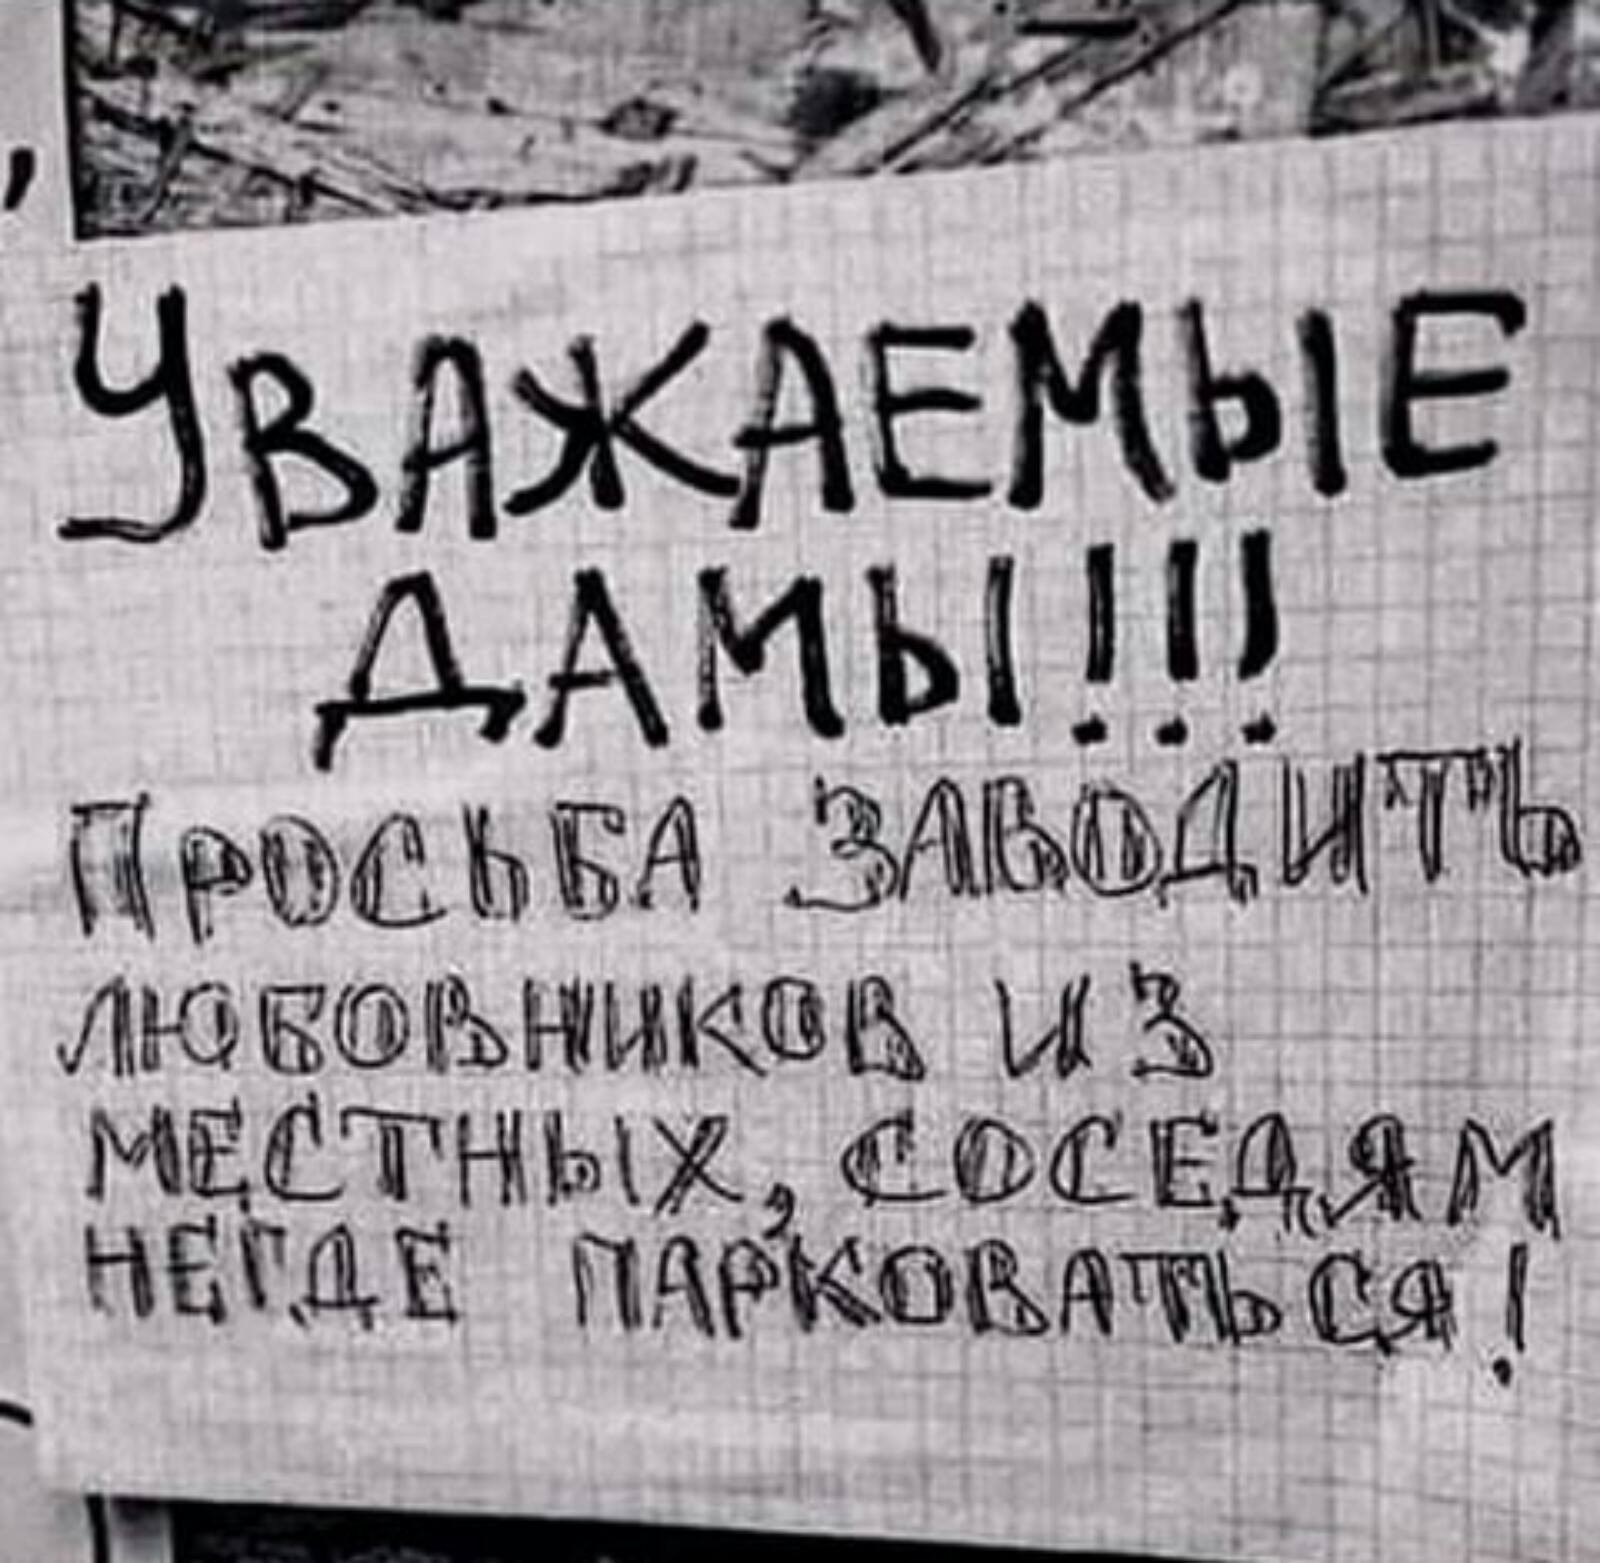 УВАЖАЕМЫЕ
ДАМЫ!!!
ПРОСЬБА ЗАВОДИТЬ
ЛЮБОВНИКОВ ИЗ
МЕСТНЫХ, СОСЕДЯМ
НЕГДЕ ПАРКОВАТЬСЯ!